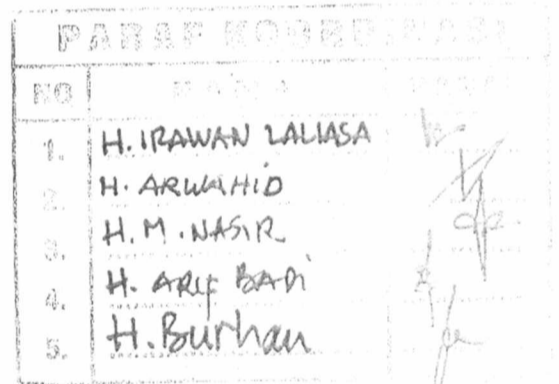 PARAF KOORDINASI
NO NAMA PARAF
1. H. IRAWAN LALIASA
2. H. ARWAHID
3. H. M. NASIR
4. H. ARIF BADI
5. H. Burhan